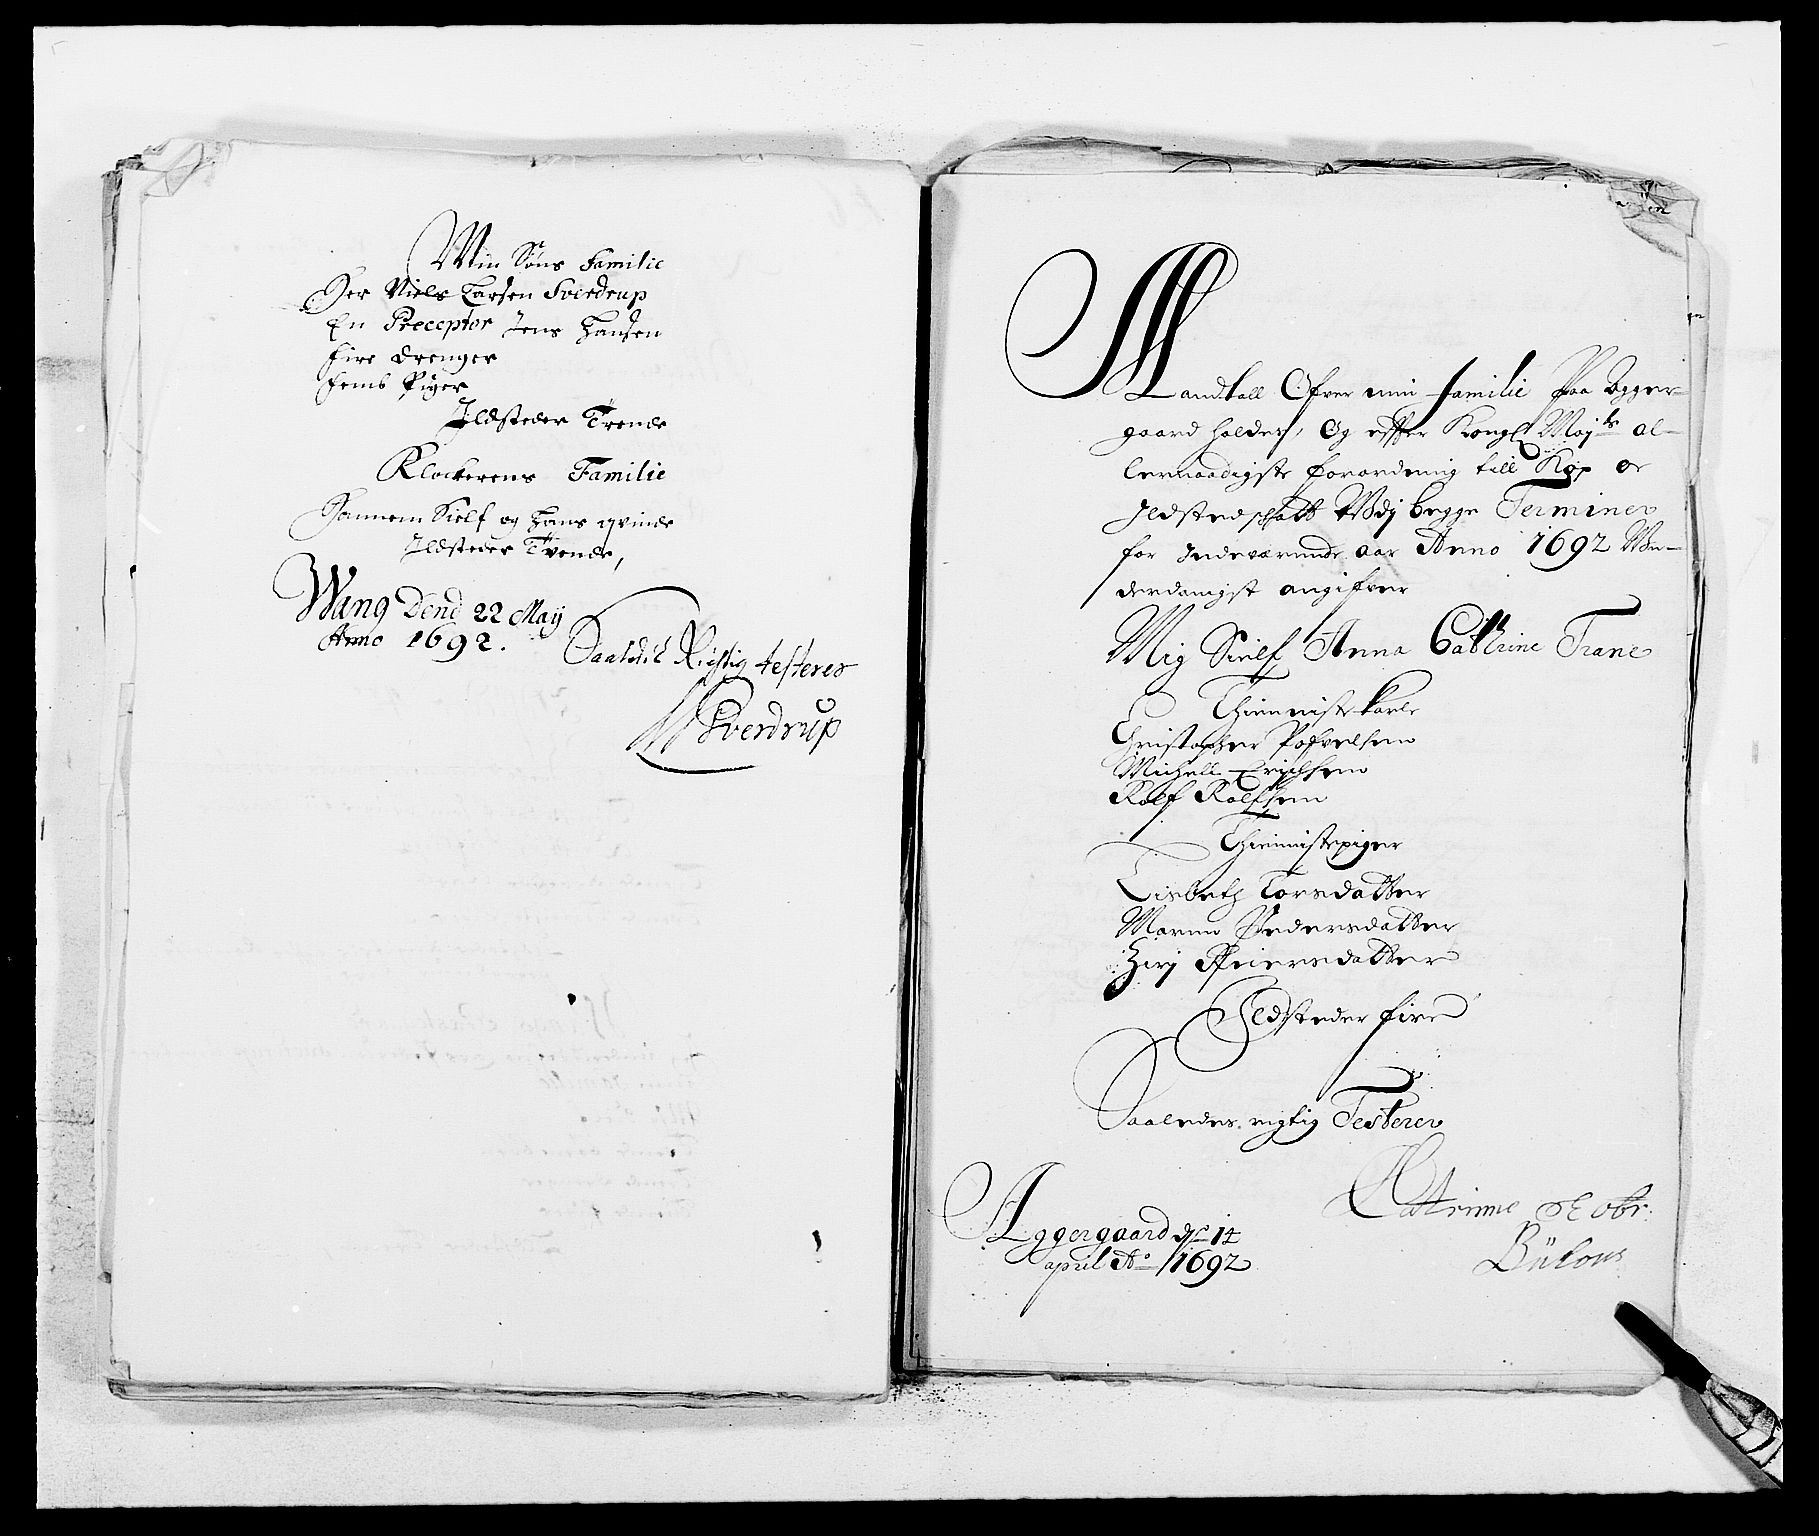 Min Søns Familie
Her Niels Larsen Sverdrup
En Preceptor Jens Hansen
fire drenger
femb Piger
Ildsteder Trende
Klockerens Familie
Hannem Sielf og Hans qvinde
Ildsteder Tvende,
Wang Dend 22 May
Anno 1692.
Saaledis Rigtig testeres
Sverdrup
Mandtall Ofver min familie Paa Agger-
gaard holdes, Og effter Kongl Mayts al-
lernaadigste forordning till Kop oc
Ildstedschatt Wdj begge Terminer
for Indeværende aar Anno 1692 Wn-
derdanigst angifver
Mig Sielf Anna Cathrine Trane
Thienniste karle
Christopher Pofvelsenn
Michell Erichsenn
Rolf Rolfsenn
Thiennistepiger
Lisbeth Torsdatter
Marenn Pedersdatter
Zirj Peiersdatter
Ildsteder fire
Saaledes rigtig Testerer
Catrinne Sl obr:
Bülous
Aggergaard dn 14
april Ao 1692